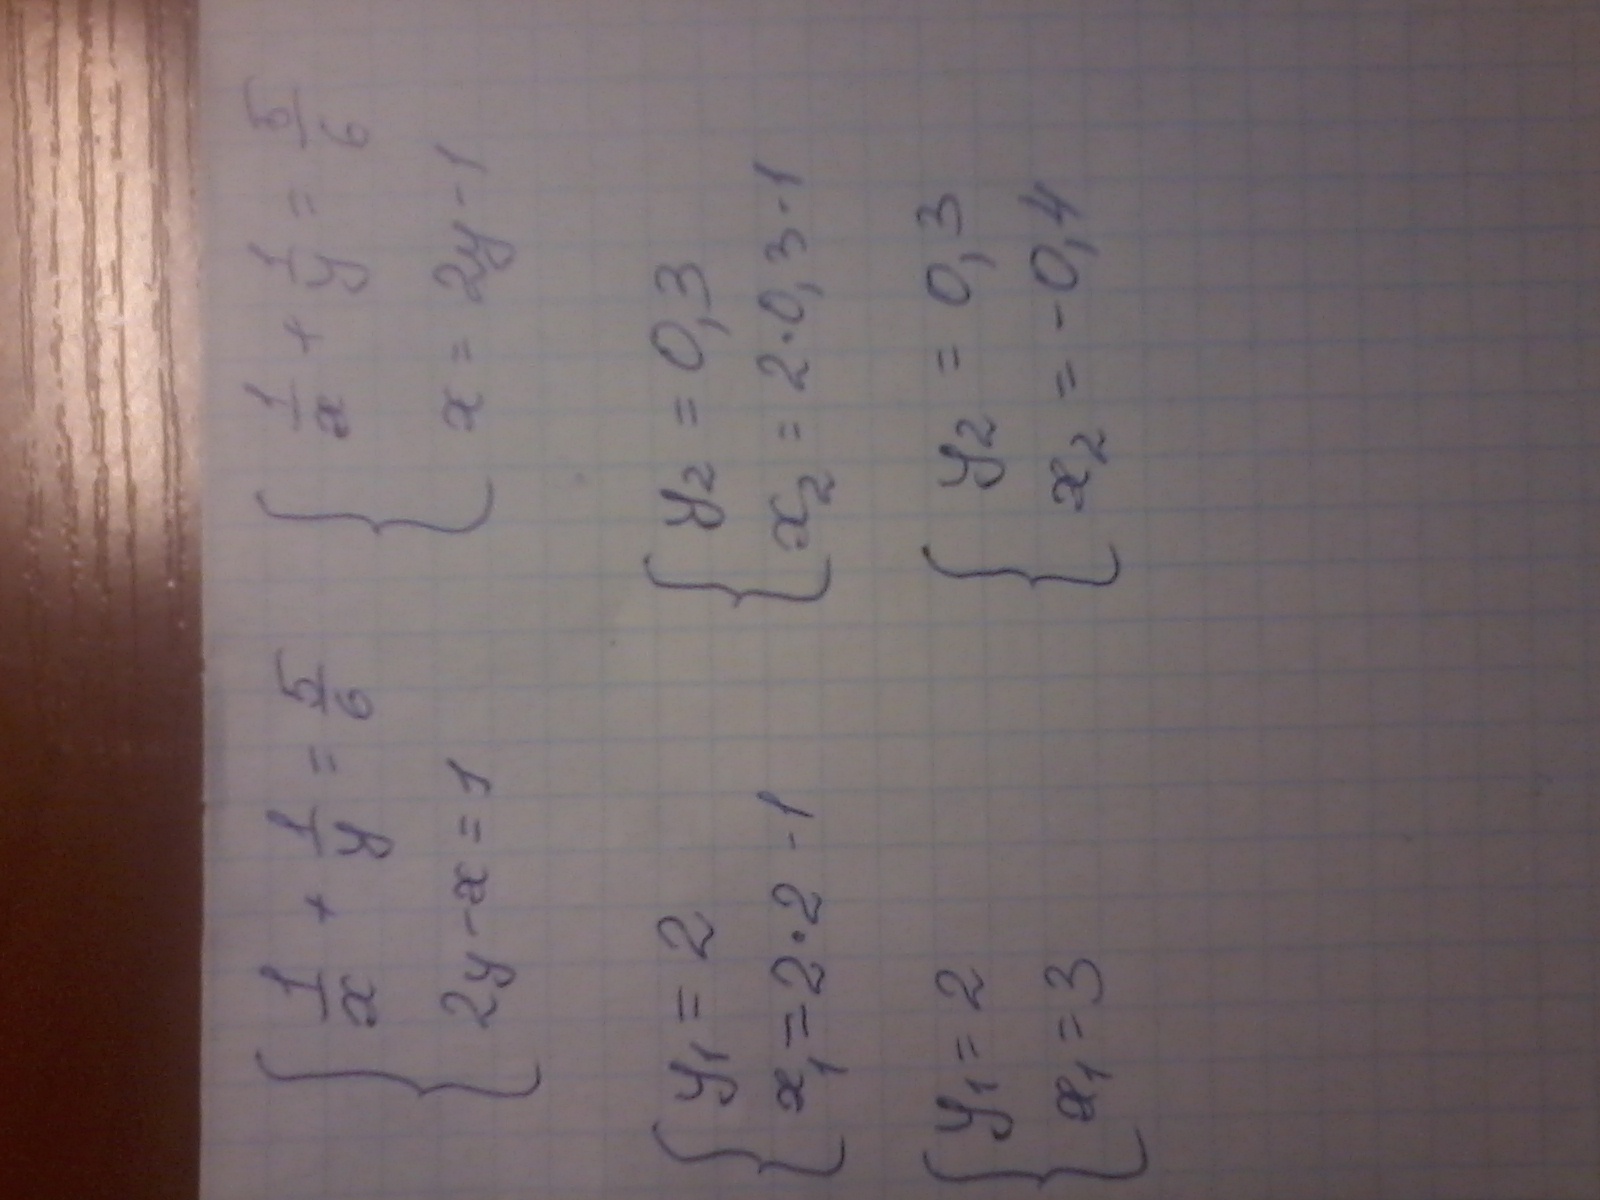 { 1/x + 1/y = 5/6
2y - x = 1
{ 1/x + 1/y = 5/6
x = 2y - 1
{ y₁ = 2
x₁ = 2·2 - 1
{ y₂ = 0,3
x₂ = 2·0,3-1
{ y₁ = 2
x₁ = 3
{ y₂ = 0,3
x₂ = -0,4